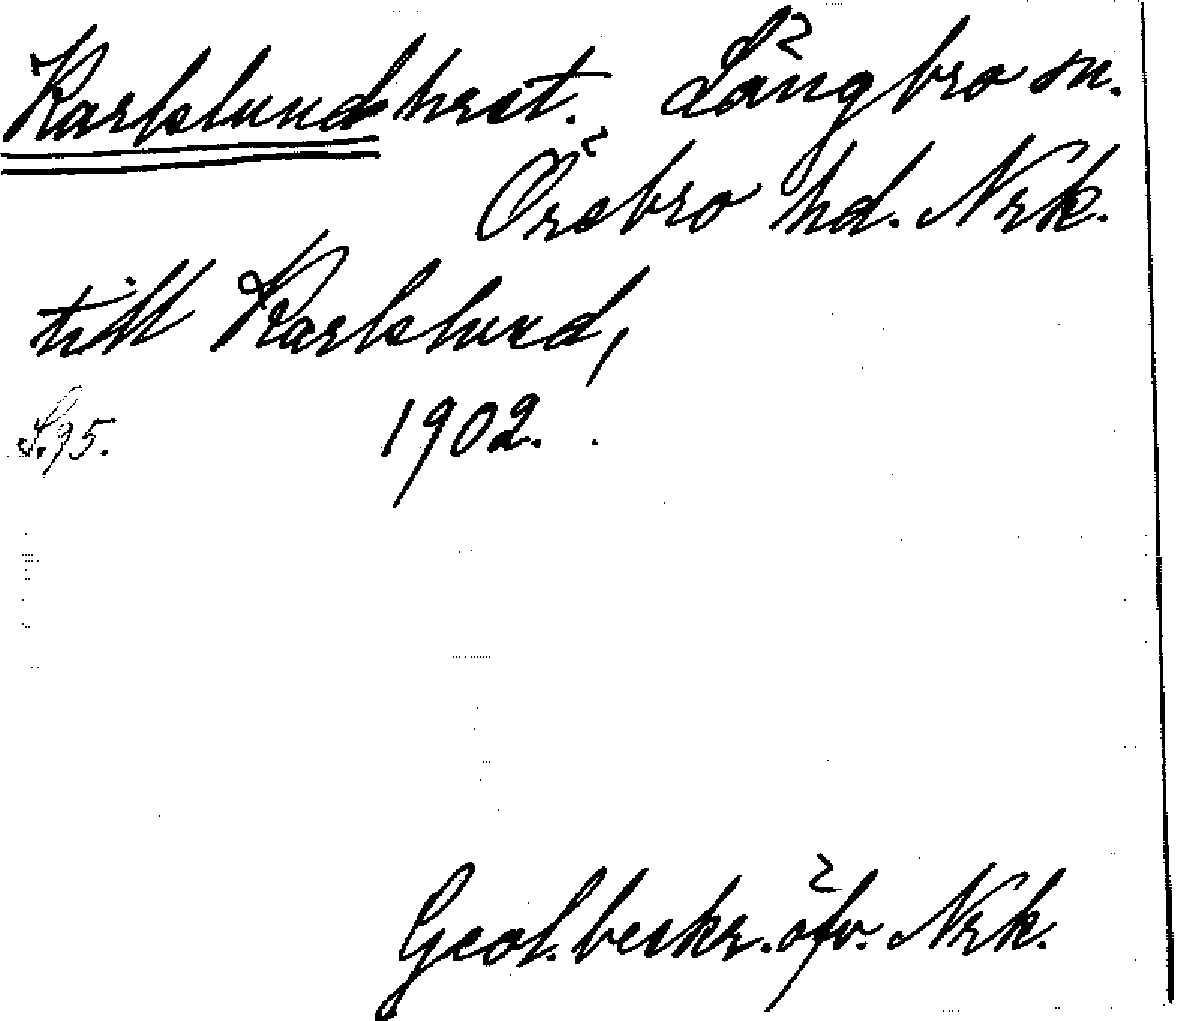 Karlslund hrst. Längbro sn.
Örebro hd. Nrk.
till Karlslund,
S. 95. 1902.
Geol. beskr. öfv. Nrk.